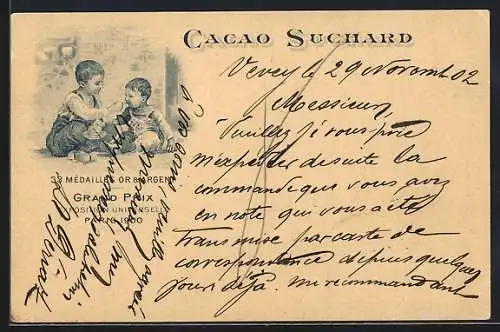 CACAO SUCHARD
33 MÉDAILLES OR & ARGENT
GRAND PRIX
EXPOSITION UNIVERSELLE
PARIS 1900
Vevey le 29 Novemb 02
Messieurs
Veuillez je vous prie
m'expedier de suite la
commande que vous avez
en note qui vous a été
transmise par carte de
correspondance depuis quelques
jours déjà. me recommandant
à vos bons